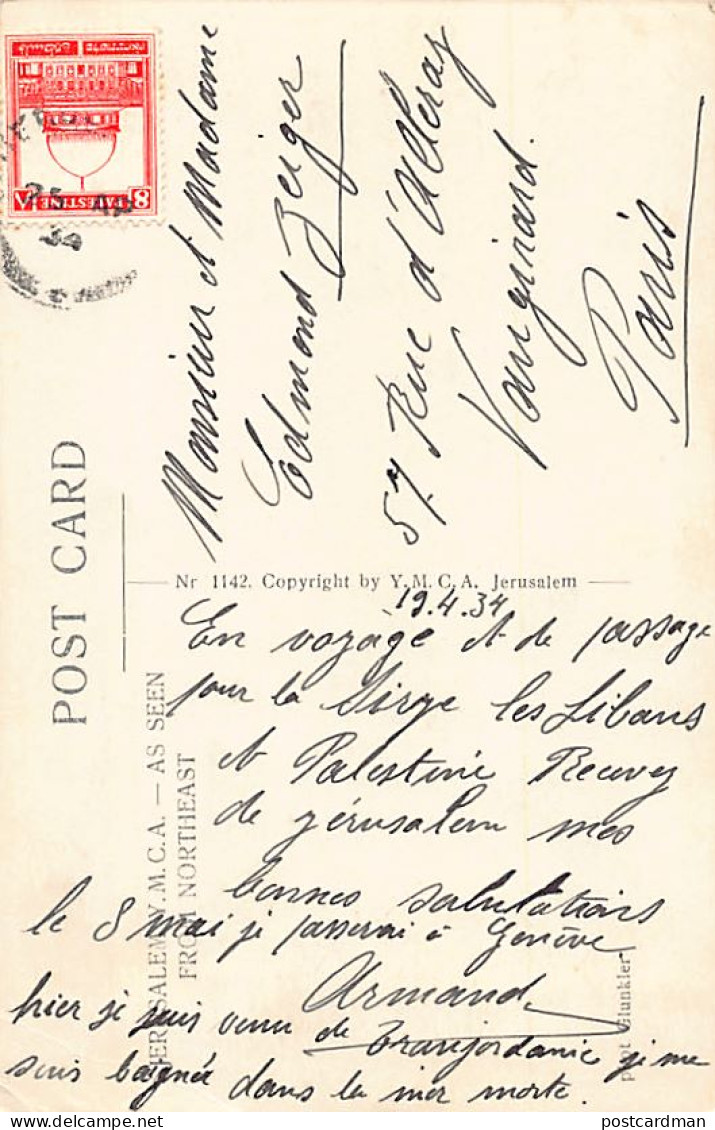 POST CARD
8 PALESTINE
25 AP
34
Monsieur et Madame
Edmond Zeiger
57 Rue d'Alleray
Vaugirard.
Paris
Nr 1142. Copyright by Y.M.C.A. Jerusalem
JERUSALEM Y.M.C.A. — AS SEEN
FROM NORTHEAST
19.4.34
En voyage et de passage
pour la Sirye les Libans
et Palestine Recevez
de jérusalem mes
bonnes salutations
le 8 mai je passerai à Genève
Armand
hier je suis venu de Transjordanie je me
suis baigné dans la mer morte.
Glunkler
postcardman